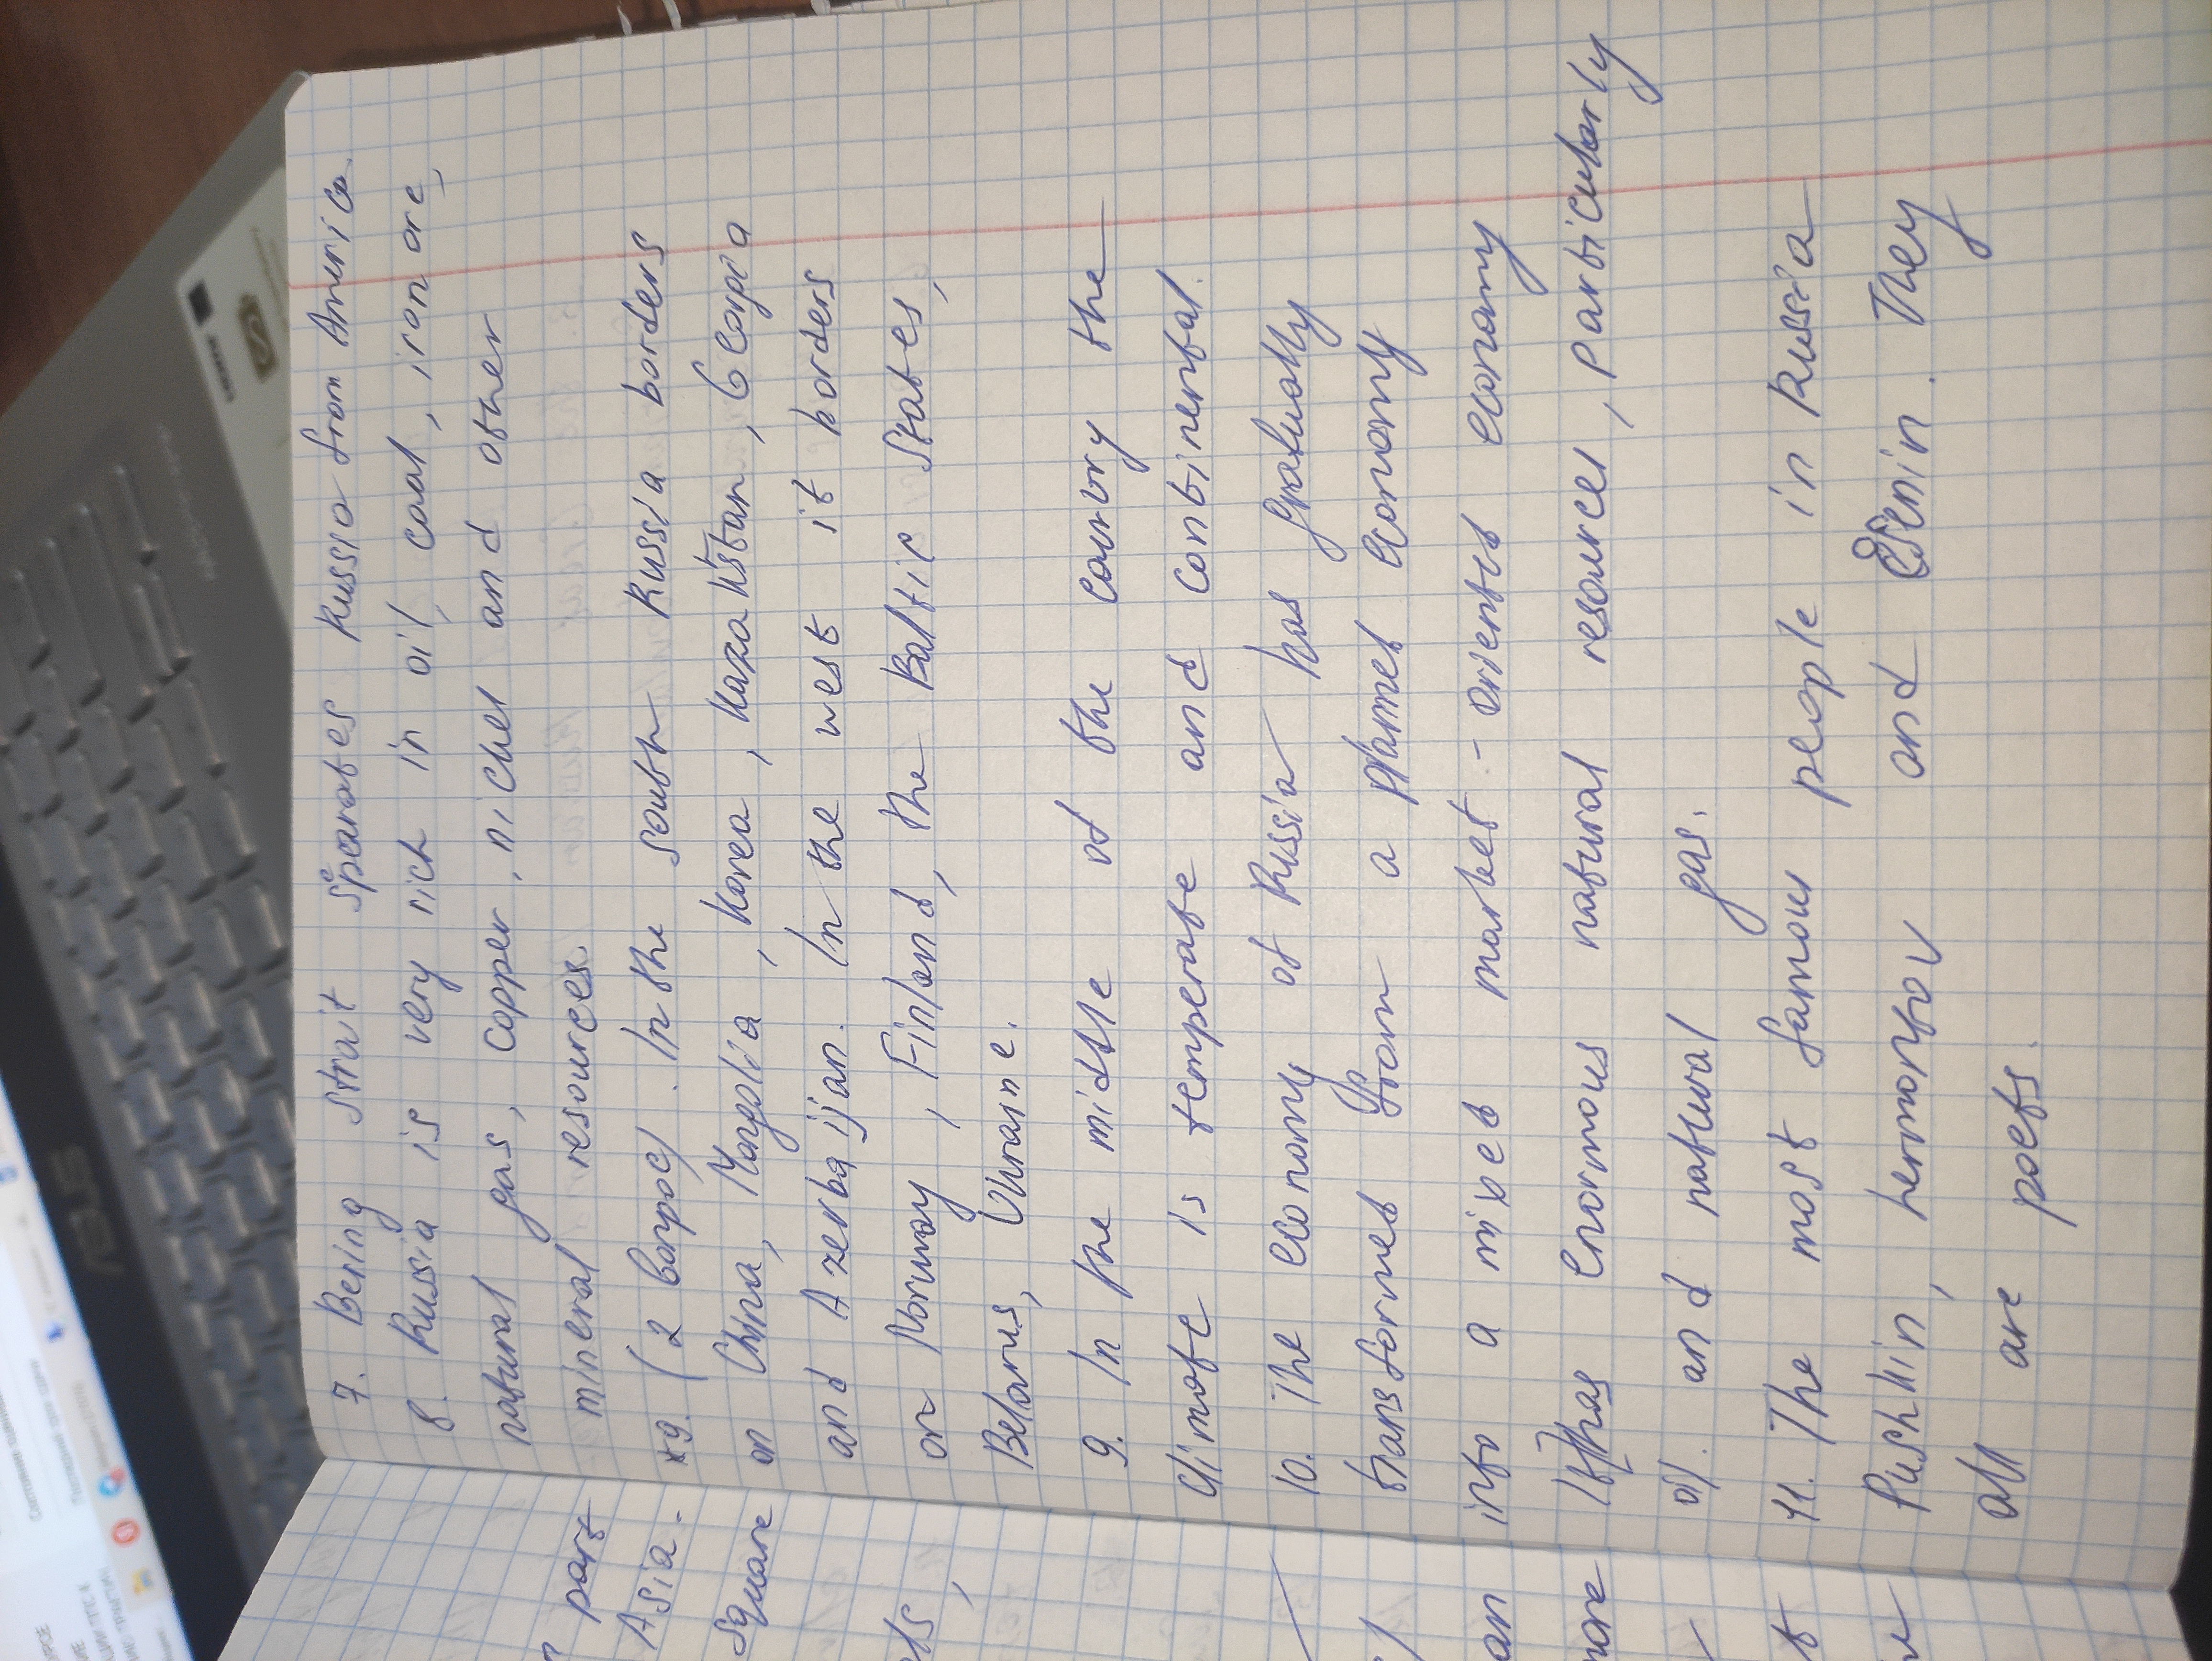 Состояние оценив
Последний срок сдачи
УРСЕ
ASUS
HDMI
7. Bering strait spearates Russia from America.
8. Russia is very rich in oil, coal, iron ore,
natural gas, copper, nickel and other
mineral resources.
*9. (2 вопрос). In the south Russia borders
on China, Mongolia, Korea, Kazakhstan, Georgia
and Azerbaijan. In the west it borders
on Norway, Finland, the Baltic States,
Belarus, Ukraine.
9. In the middle of the country the
climate is temperate and continental.
10. The economy of Russia has gradually
transformed from a planned economy
into a mixed market-oriented economy
It has enormous natural resources, particularly
oil. and natural gas.
11. The most famous people in Russia
Pushkin, Lermontov and Esenin. They
all are poets.
part
Asia.
square
an
more